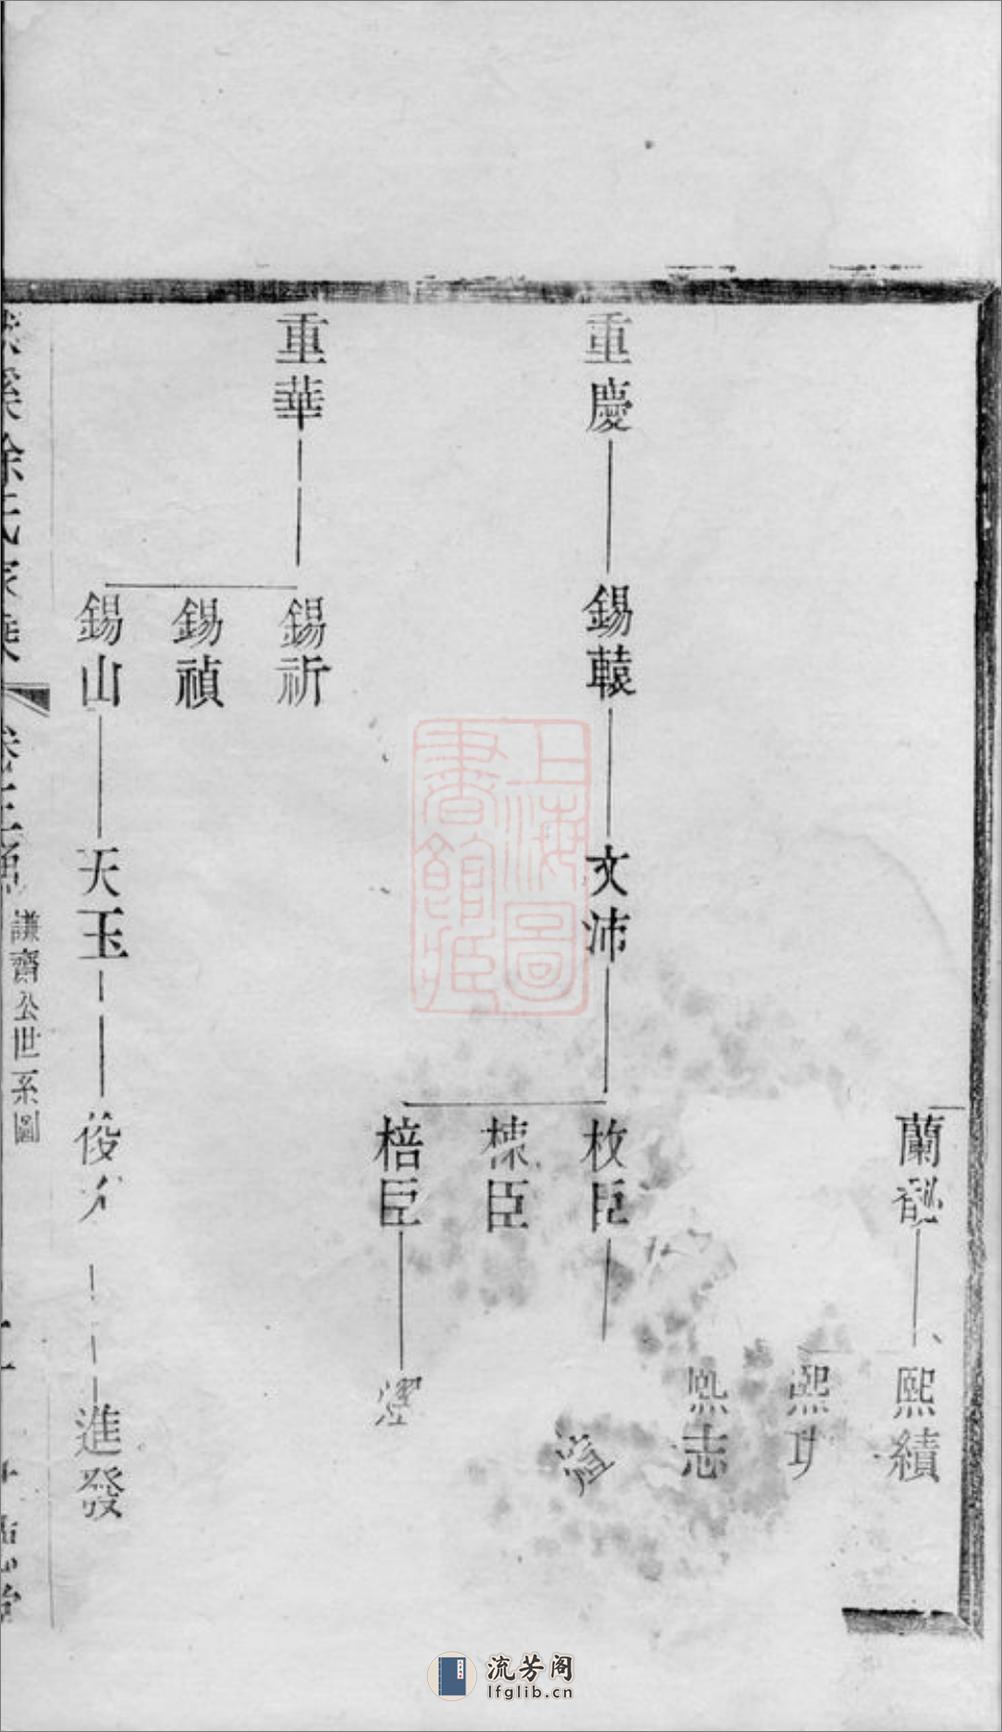 蘭馥
熙績
熙功
熙志
重慶
錫轅
文沛
枚臣
棟臣
棓臣
重華
錫祈
錫禎
錫山
天玉
俊
進發
徐氏家乘
謙齋公世系圖
上海圖
書館藏
流芳阁
lfglib.cn